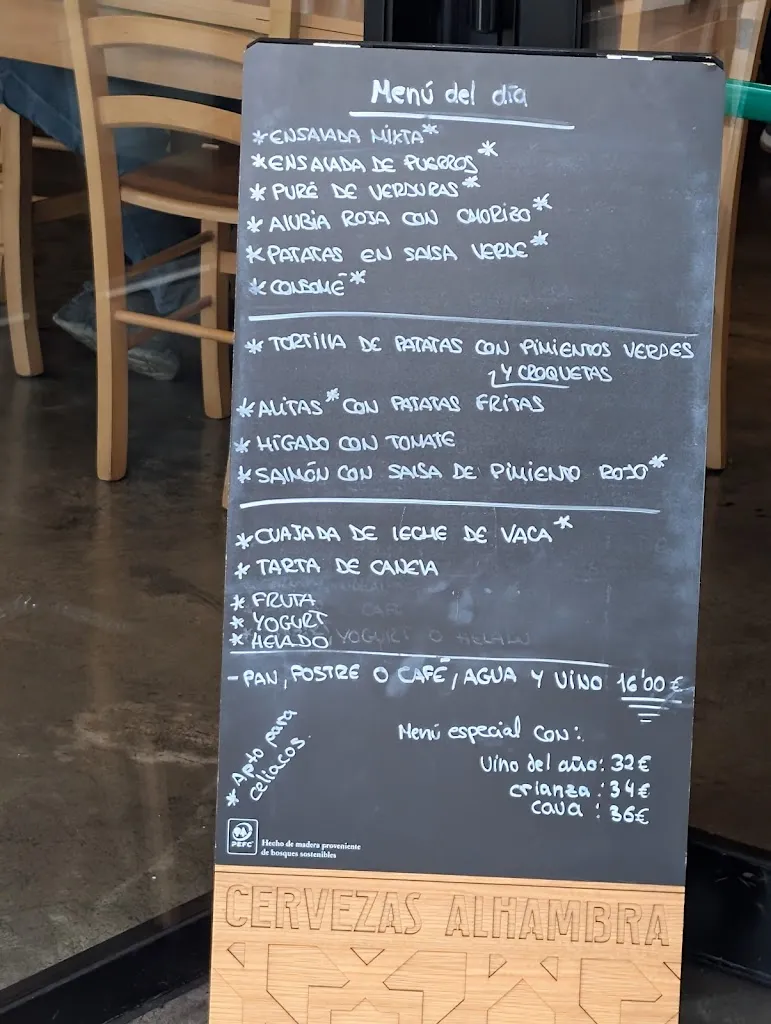 Menú del día
* ENSALADA MIXTA *
* ENSALADA DE PUERROS *
* PURÉ DE VERDURAS *
* ALUBIA ROJA CON CHORIZO *
* PATATAS EN SALSA VERDE *
* CONSOMÉ *
* TORTILLA DE PATATAS CON PIMIENTOS VERDES
Y CROQUETAS
* ALITAS * CON PATATAS FRITAS
* HÍGADO CON TOMATE
* SALMÓN CON SALSA DE PIMIENTO ROJO *
* CUAJADA DE LECHE DE VACA *
* TARTA DE CANELA
* FRUTA
* YOGURT
* HELADO
- PAN, POSTRE O CAFÉ, AGUA Y VINO 16'00 €
Menú especial CON:
Vino del año: 32€
crianza : 34€
cava : 36€
* Apto para
celiacos.
PEFC
Hecho de madera proveniente
de bosques sostenibles
CERVEZAS ALHAMBRA